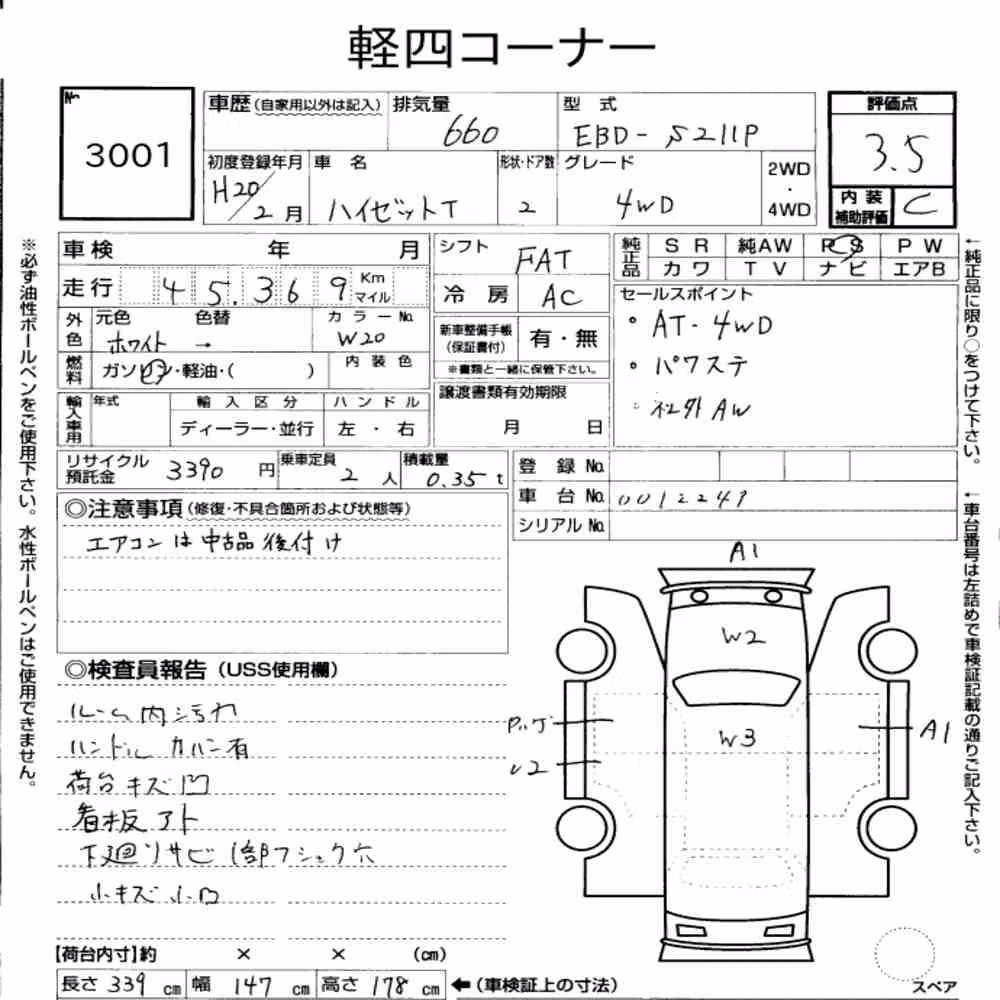 軽四コーナー
№
3001
車歴(自家用以外は記入) 排気量 660
型式 EBD-S211P
評価点
3.5
内装補助評価 C
初度登録年月 H20/2月
車名 ハイゼットT
形状・ドア数 2
グレード 4WD
2WD・4WD
車検 年 月
シフト FAT
純正品 SR 純AW PS PW
カワ TV ナビ エアB
走行 45.369 Km マイル
冷房 AC
セールスポイント
・AT-4WD
・パワステ
・社外AW
外色 元色 色替 カラーNo.
ホワイト → W20
新車整備手帳(保証書付) 有・無
※書類と一緒に保管下さい。
燃料 ガソリン・軽油・( ) 内装色
譲渡書類有効期限
月 日
輸入車用 年式 輸入区分 ハンドル
ディーラー・並行 左・右
リサイクル預託金 3390円 乗車定員 2人 積載量 0.35t
登録No.
車台No. 0012249
シリアルNo.
◎注意事項(修復・不具合箇所および状態等)
エアコンは中古品後付け
◎検査員報告(USS使用欄)
ルーム内汚れ
ハンドルカバー有
荷台キズ凹
看板アト
下廻りサビ 1部フショク穴
小キズ小凹
A1
W2
W3
A1
【荷台内寸】約 × × (cm)
長さ 339 cm 幅 147 cm 高さ 178 cm ←(車検証上の寸法)
スペア
※必ず油性ボールペンをご使用下さい。水性ボールペンはご使用できません。
←純正品に限り○をつけて下さい。
←車台番号は左詰めで車検証記載の通りご記入下さい。